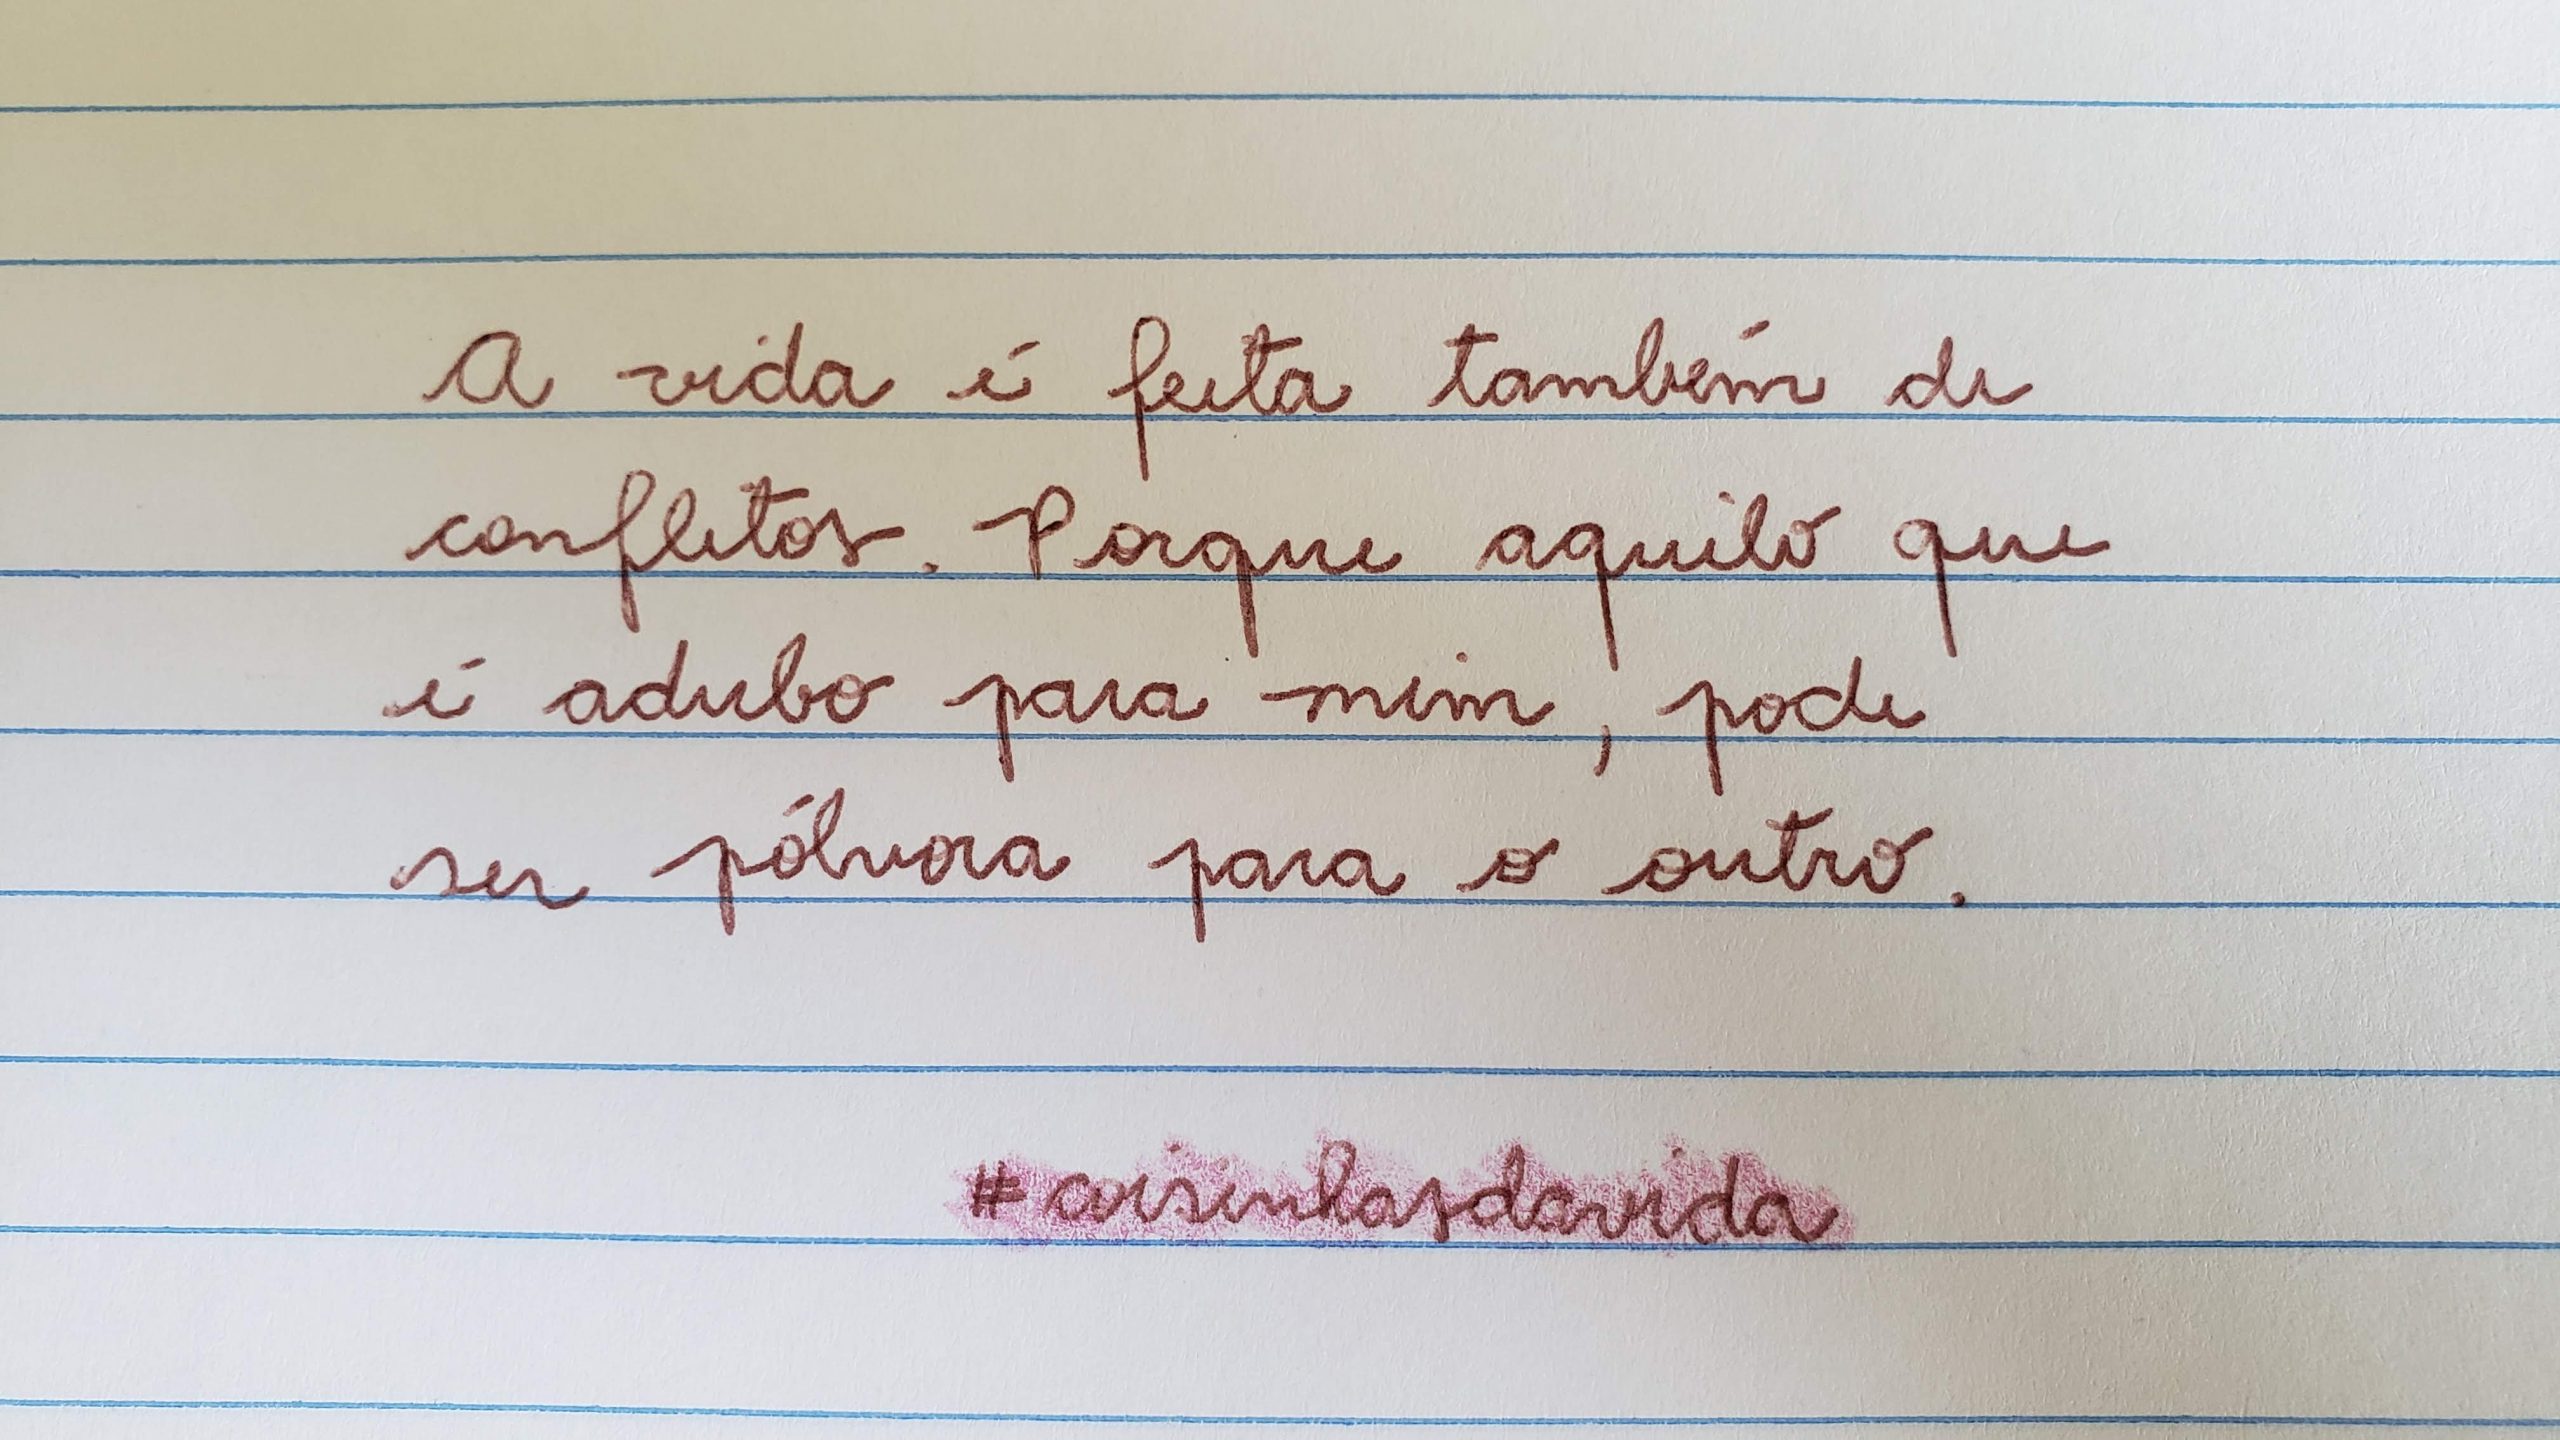 A vida é feita também de
conflitos. Porque aquilo que
é adubo para mim, pode
ser pólvora para o outro.
#coisinhasdavida